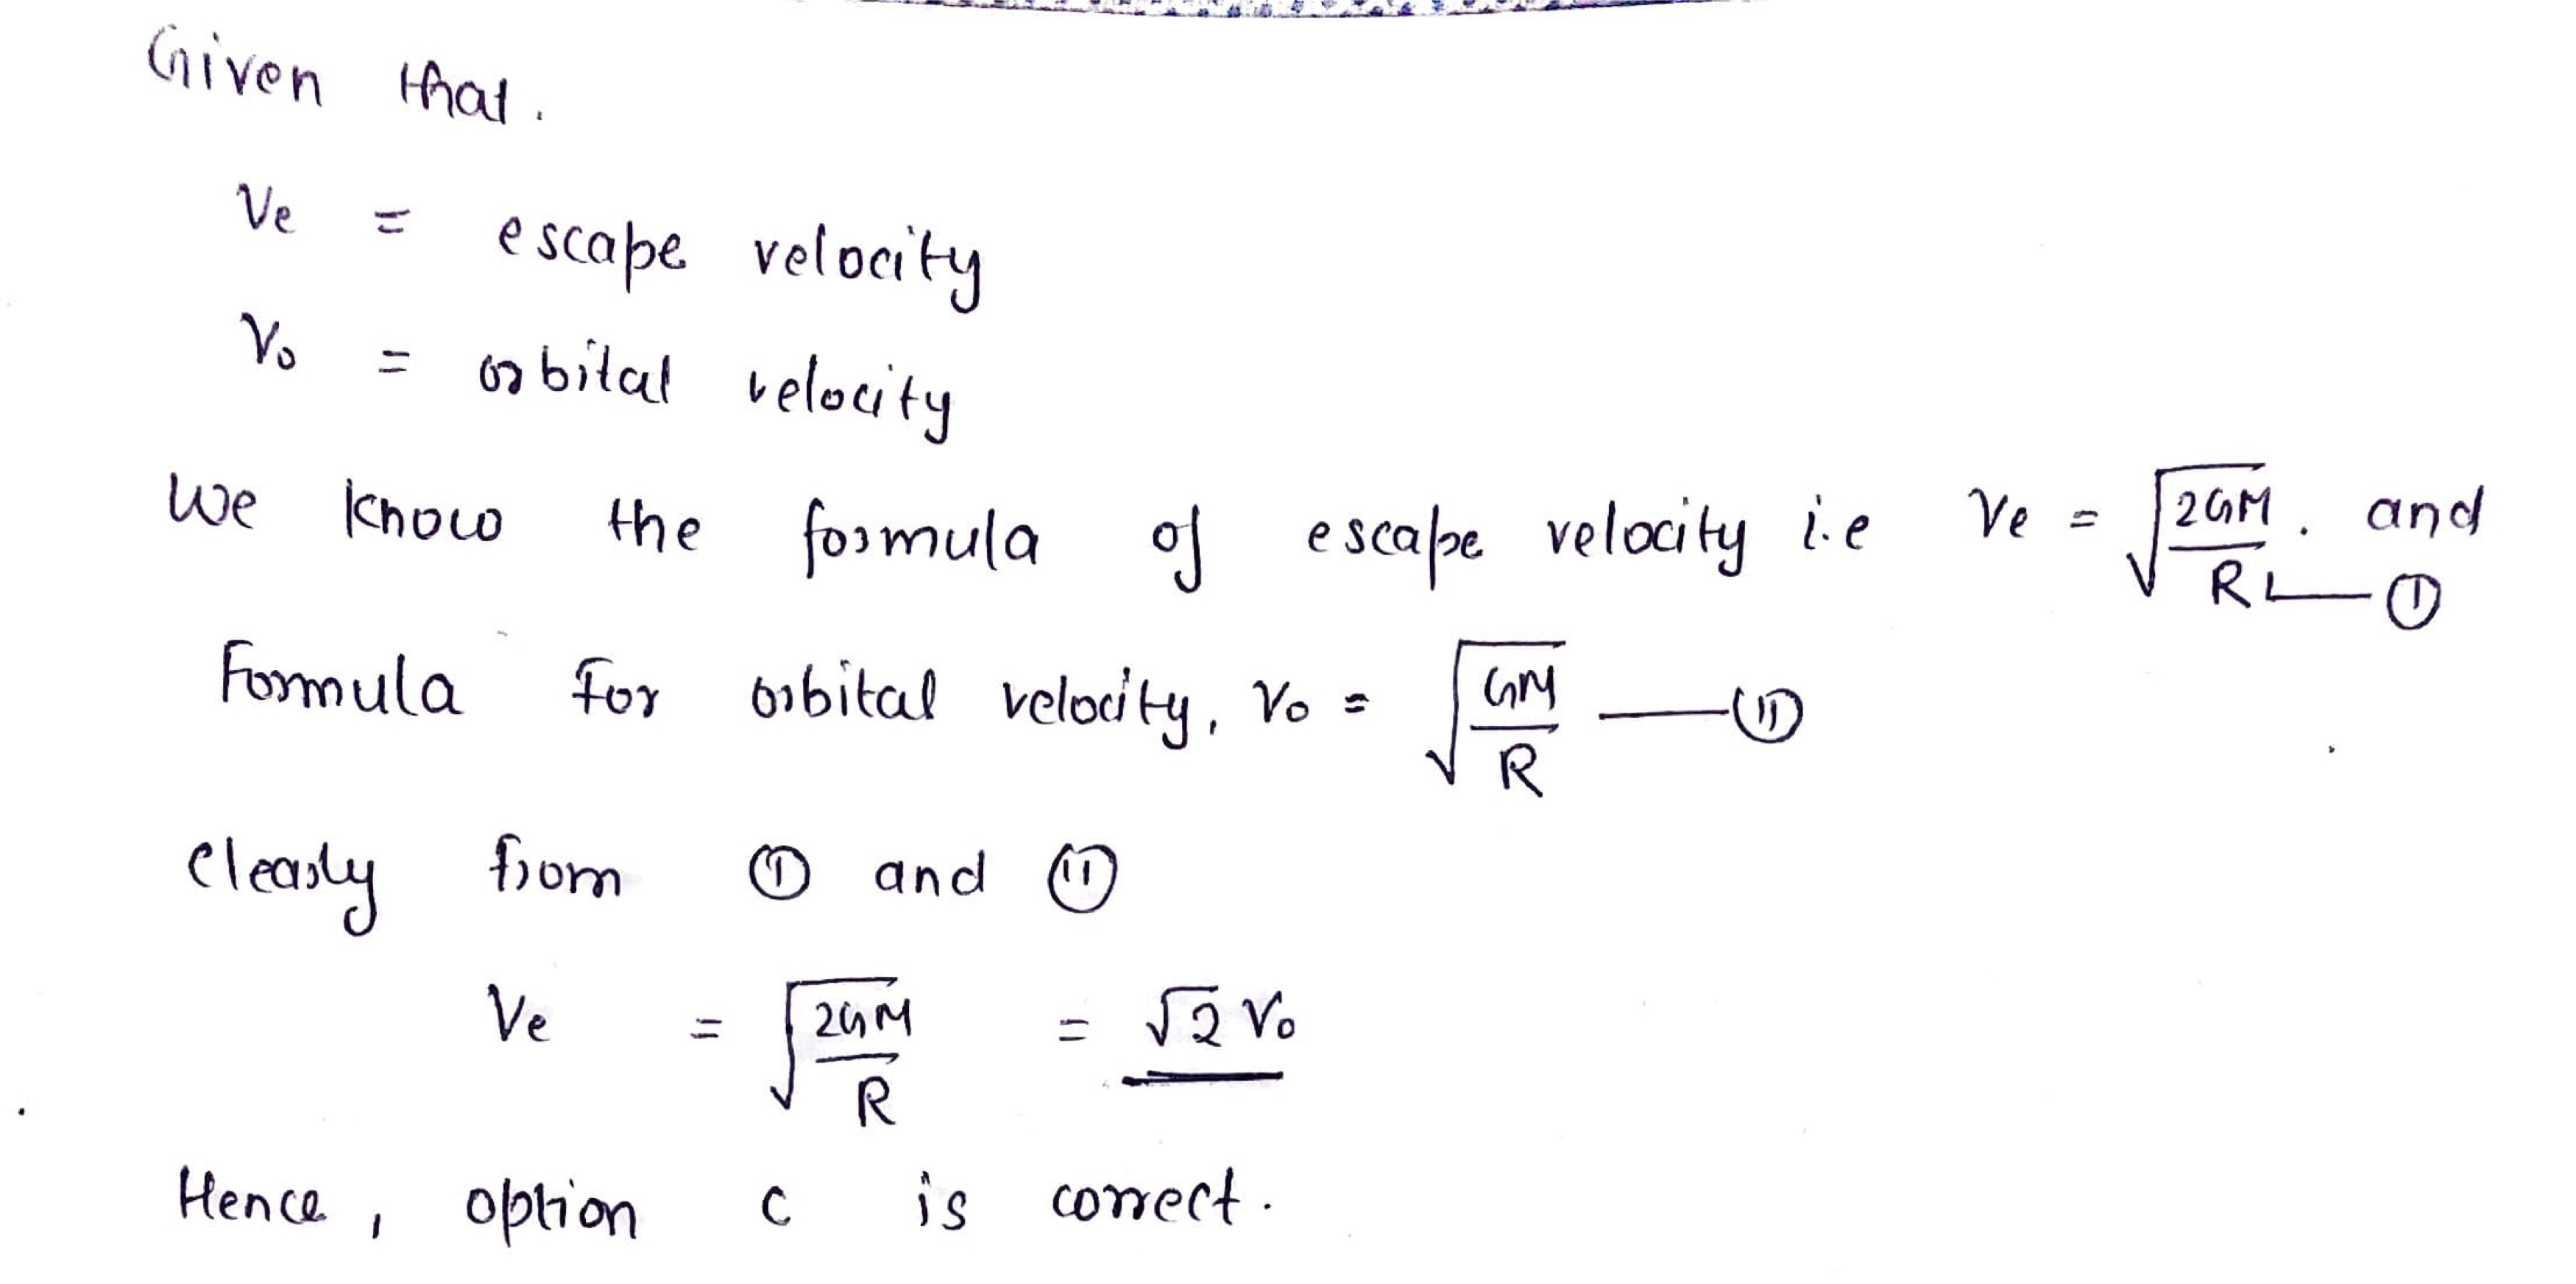 Given that.
Ve = escape velocity
Vo = orbital velocity
We know the formula of escape velocity i.e Ve = √(2GM/R). and —(I)
Formula for orbital velocity, Vo = √(GM/R) —(II)
clearly from (I) and (II)
Ve = √(2GM/R) = √2 Vo
Hence, option c is correct.